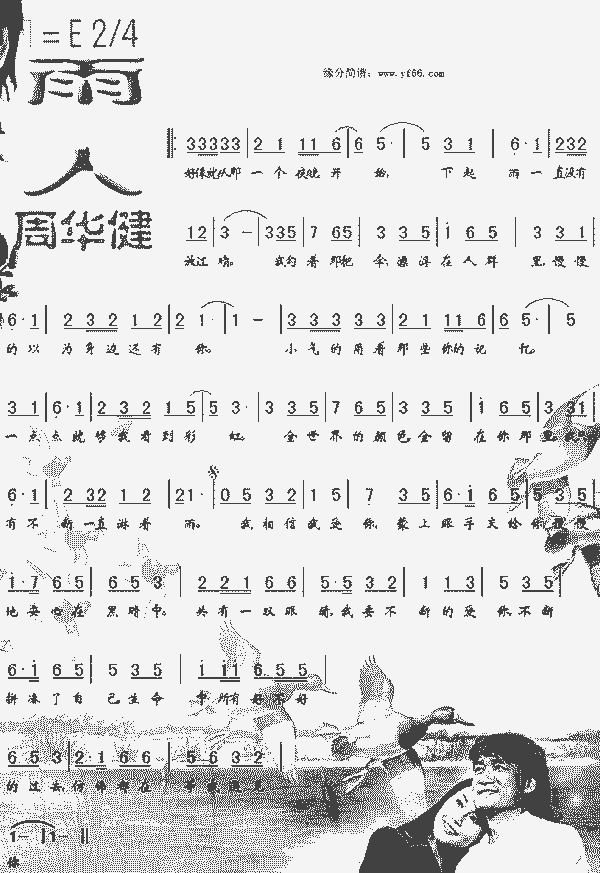 1=E 2/4
雨
人
周华健
缘分简谱：www.yf66.com
33333 | 2 1 11 6 | 6 5· | 5 3 1 | 6·1 | 232
好像就从那 一 个 夜晚 开 始， 下 起 雨 一 直没有
12 | 3 - | 335 | 7 65 | 3 3 5 | 1 6 5 | 3 3 1
我 着 那把 伞 漂 浮 在 人 群 里 慢 慢
6·1 | 2 3 2 1 2 | 2 1· | 1 - | 3 3 3 3 3 | 2 1 11 6 | 6 5· | 5
的 以 为 身 边 还 有 你。 小 气 的 用 着 那 些 你的 记 忆。
3 1 | 6·1 | 2 3 2 1 5 | 5 3· | 3 3 5 | 7 6 5 | 3 3 5 | 1 6 5 | 3 31
一 点 点 就 够 我 看 到 彩 虹。 全 世 界 的 颜 色 全 留 在 你 那 里
6·1 | 2 32 1 2 | 21· | 0 5 3 2 | 1 5 | 7 3 5 | 6·1 6 5 | 5 3 5
有 不 断 一直 淋 着 雨。 我 相 信 我 爱 你， 蒙 上 眼 手 交 给 你 慢 慢
1·7 6 5 | 6 5 3 | 2 2 1 6 6 | 5·5 3 2 | 1 1 3 | 5 3 5
地 安 心 在 黑 暗 中。 只 有 一 双 眼 睛，我 要 不 断 的 爱 你，不 断
6·1 6 5 | 5 3 5 | 1 11 6 5 5
拼 凑 了 自 己 生 命 所有 好 不 好
6 5 3 | 2·1 6 6 | 5 6 3 2
的 过 去，仿 佛 都 在 等 着 遇 见
1- | 1- ‖
你